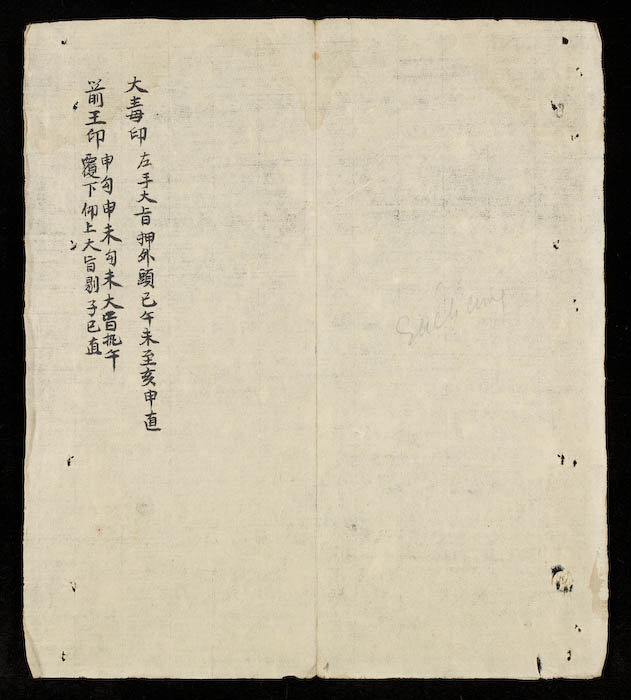 大毒印 左手大旨押外頭巳午未至亥申直
前王印 申勾申未勾未大旨扤午
覆下仰上大旨剔子巳直